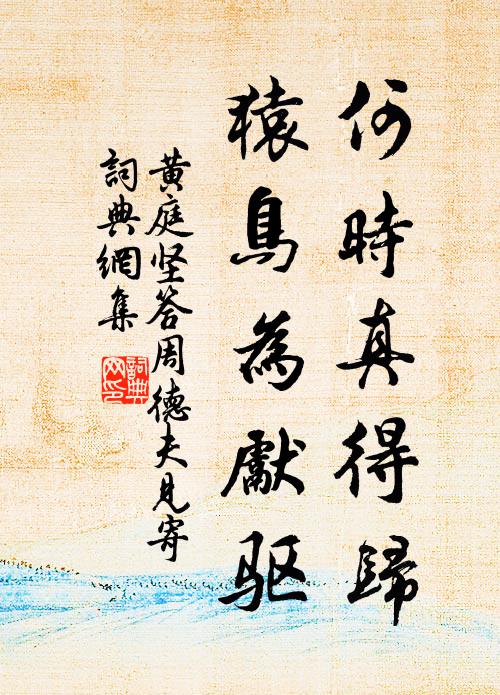 何時真得歸
猿鳥為獻驱
黄庭坚答周德夫見寄
詞典網集
詞典网印